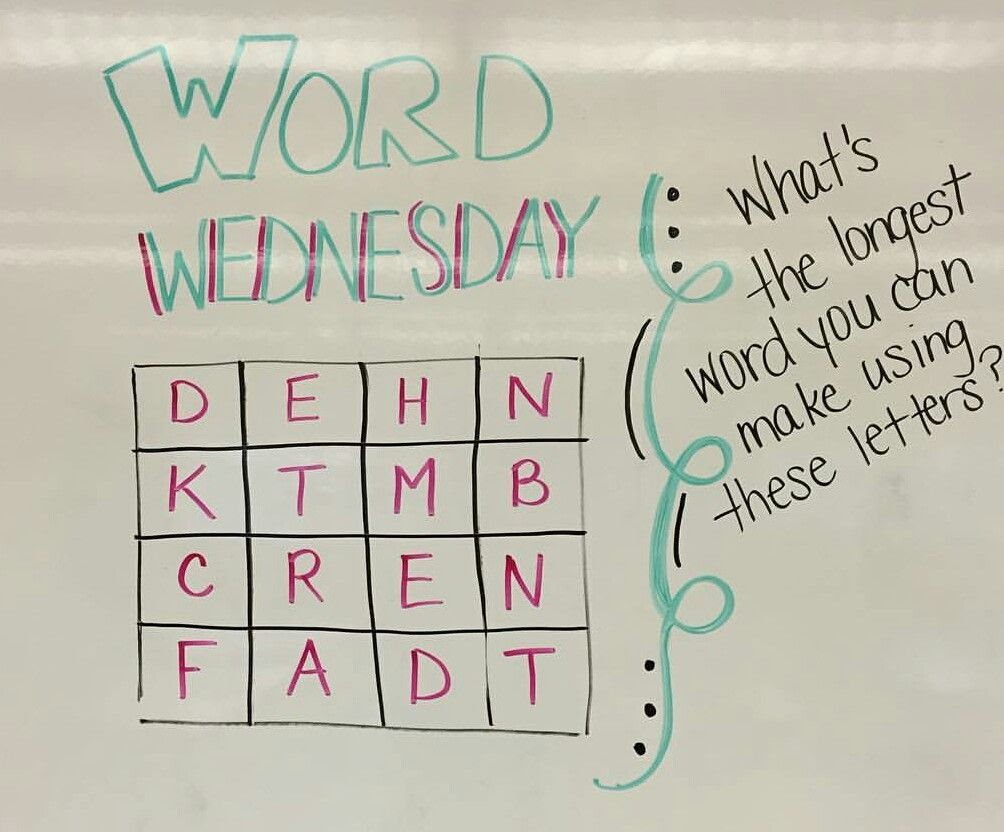 WORD
WEDNESDAY
D E H N
K T M B
C R E N
F A D T
What's
the longest
word you can
make using
these letters?